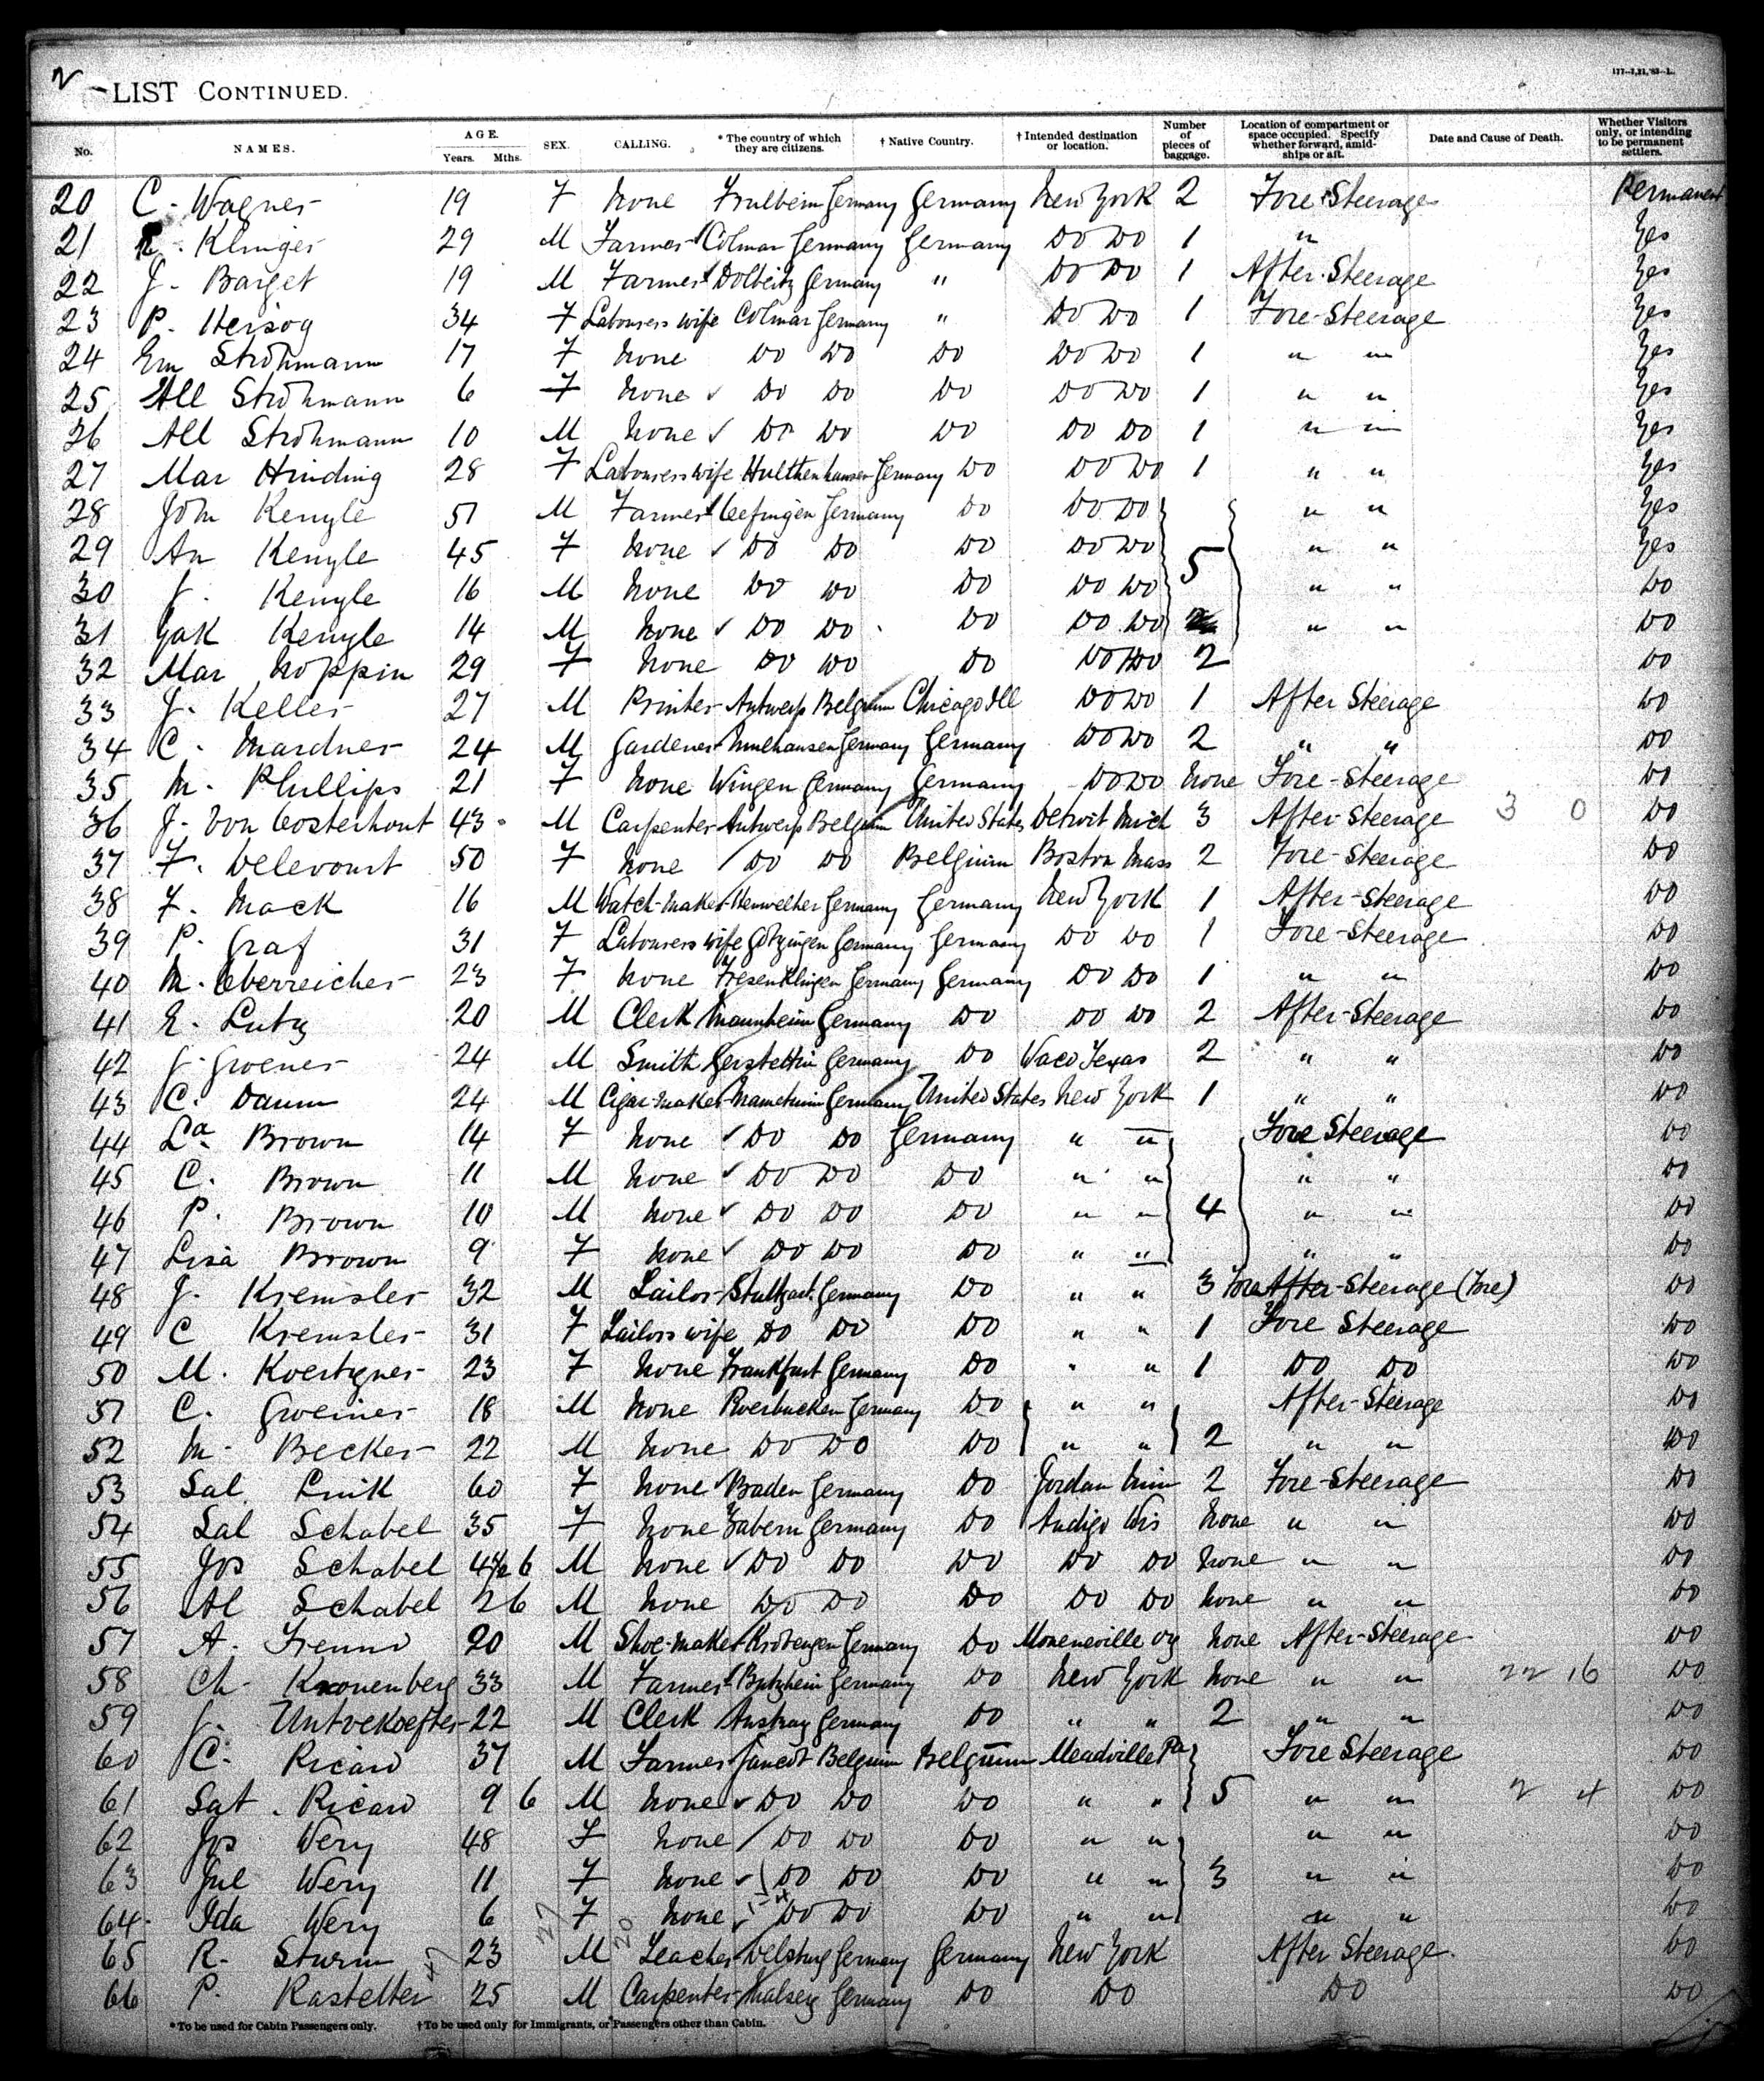 2
LIST CONTINUED.
177—7,21,'83—L.
No. NAMES. AGE. Years. Mths. SEX. CALLING. * The country of which they are citizens. † Native Country. † Intended destination or location. Number of pieces of baggage. Location of compartment or space occupied. Specify whether forward, amidships or aft. Date and Cause of Death. Whether Visitors only, or intending to be permanent settlers.
20 C. Wagner 19 F None Germany Germany New York 2 Fore Steerage Permanent
21 Klinger 29 M Farmer Colmar Germany Germany Do Do 1 " Yes
22 J. Barget 19 M Farmer Germany " Do Do 1 After Steerage Yes
23 P. Herzog 34 F Labourers wife Colmar Germany " Do Do 1 Fore-Steerage Yes
24 Em Strohmann 17 F None Do Do Do Do Do 1 " " Yes
25 All Strohmann 6 F None Do Do Do Do Do 1 " " Yes
26 All Strohmann 10 M None Do Do Do Do Do 1 " " Yes
27 Mar Hinding 28 F Labourers wife Germany Do Do Do 1 " " Yes
28 John Kengle 51 M Farmer Germany Do Do Do " " Yes
29 An Kengle 45 F None Do Do Do Do Do 5 " " Yes
30 J. Kengle 16 M None Do Do Do Do Do " " Do
31 Jak Kengle 14 M None Do Do Do Do Do " " Do
32 Mar Hoppin 29 F None Do Do Do Do Do 2 Do
33 J. Keller 27 M Printer Antwerp Belgium Chicago Ill Do Do 1 After Steerage Do
34 C. Mardner 24 M Gardener Mulhausen Germany Germany Do Do 2 " " Do
35 M. Phillips 21 F None Wingen Germany Germany Do Do None Fore-Steerage Do
36 J. Von Oosterhout 43 M Carpenter Antwerp Belgium United States Detroit Mich 3 After-Steerage 3 0 Do
37 F. Delevourt 50 F None Do Do Belgium Boston Mass 2 Fore-Steerage Do
38 F. Mack 16 M Watch-maker Germany Germany New York 1 After-Steerage Do
39 P. Graf 31 F Labourers wife Germany Germany Do Do 1 Fore-Steerage Do
40 M. Oberreicher 23 F None Germany Germany Do Do 1 " " Do
41 E. Lutz 20 M Clerk Mannheim Germany Do Do Do 2 After-Steerage Do
42 J. Groener 24 M Smith Gerstettin Germany Do Waco Texas 2 " " Do
43 C. Daum 24 M Cigar-maker Germany United States New York 1 " " Do
44 La Brown 14 F None Do Do Germany " " Fore Steerage Do
45 C. Brown 11 M None Do Do Do " " " " Do
46 P. Brown 10 M None Do Do Do " " 4 " " Do
47 Lisa Brown 9 F None Do Do Do " " " " Do
48 J. Kremsler 32 M Tailor Stuttgart Germany Do " " 3 Fore After-Steerage (Fore) Do
49 C Kremsler 31 F Tailors wife Do Do Do " " 1 Fore Steerage Do
50 M. Koestgner 23 F None Frankfurt Germany Do " " 1 Do Do Do
51 C. Greiner 18 M None Germany Do " " After-Steerage Do
52 M. Becker 22 M None Do Do Do " " 2 " " Do
53 Sal Link 60 F None Baden Germany Do Jordan Minn 2 Fore-Steerage Do
54 Sal Schabel 35 F None Zabern Germany Do Antigo Wis None " " Do
55 Jos Schabel 4 6 M None Do Do Do Do Do None " " Do
56 Al Schabel 2 6 M None Do Do Do Do Do None " " Do
57 A. Freund 20 M Shoe-maker Germany Do None After-Steerage Do
58 Ch. Kronenberg 33 M Farmer Germany Do New York None " " 22 16 Do
59 J. 22 M Clerk Germany Do " " 2 " " Do
60 C. Ricard 37 M Farmer Belgium Belgium Meadville Pa Fore Steerage Do
61 Sat. Ricard 9 6 M None Do Do Do " " 5 " " 2 4 Do
62 Jos Wery 48 F None Do Do Do " " " " Do
63 Jul Wery 11 F None Do Do Do " " 3 " " Do
64 Ida Wery 6 F None Do Do Do " " " " Do
65 R. Sturm 23 M Teacher Germany Germany New York After Steerage Do
66 P. Rastetter 25 M Carpenter Germany Do Do Do Do
* To be used for Cabin Passengers only. † To be used only for Immigrants, or Passengers other than Cabin.